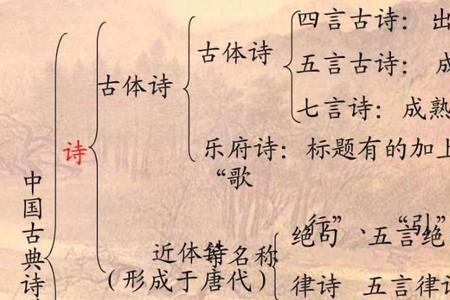 四言古诗： 出
古体诗
五言古诗： 成
古体诗
七言诗：成熟
诗
乐府诗：标题有的加上
“歌
中国古典诗
行”、“引”
绝句 五言绝
近体诗 等名称
（形成于唐代）
律诗 五言律诗